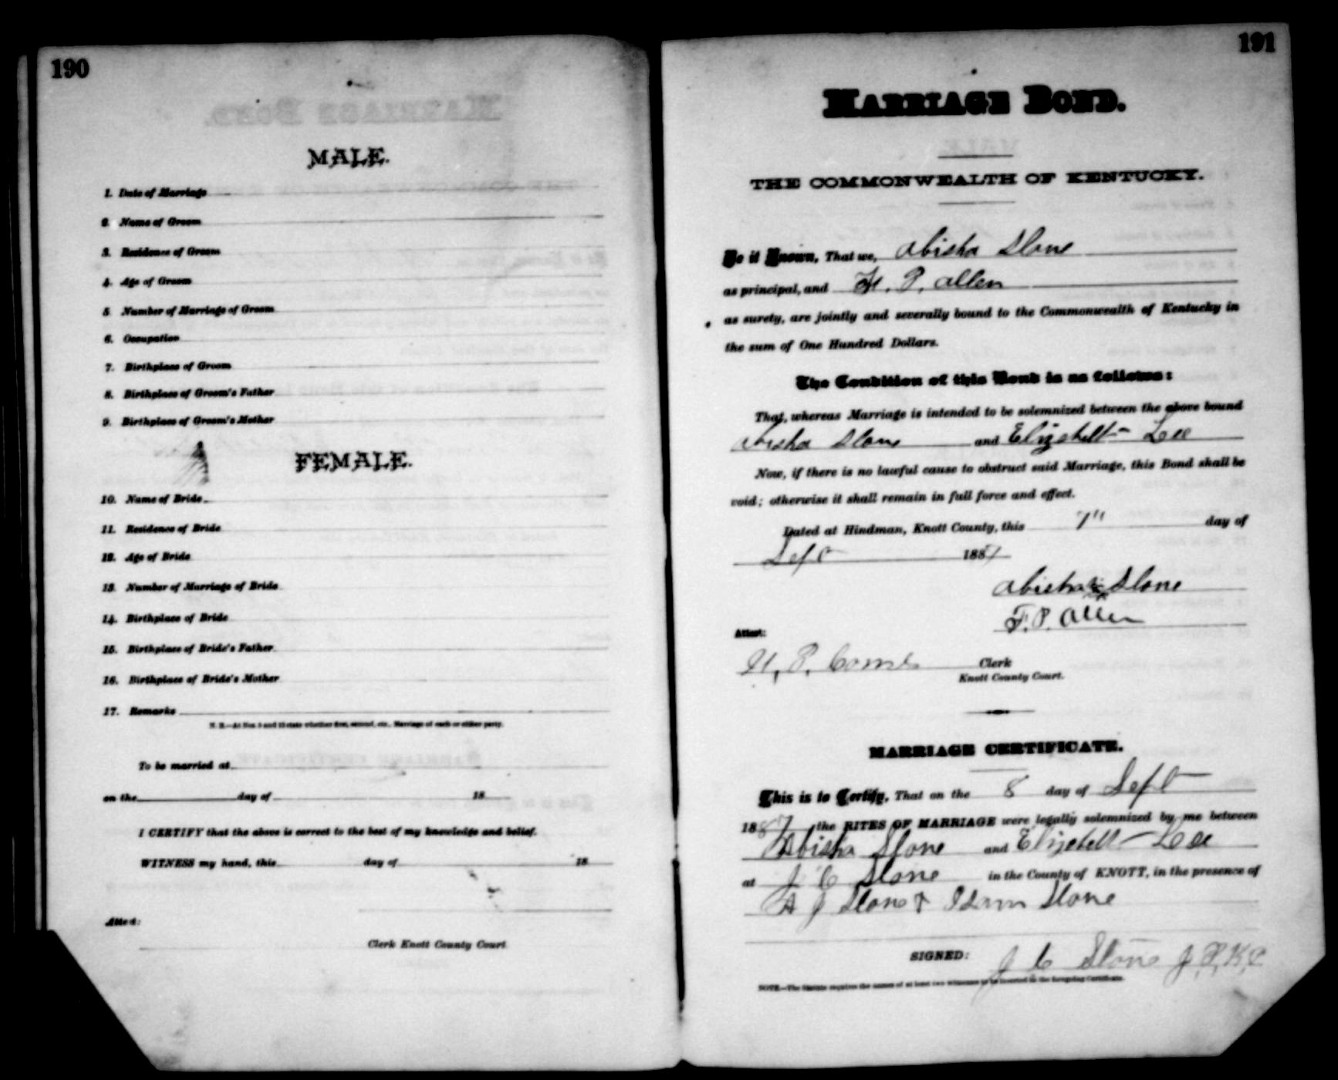 190
MALE.
1. Date of Marriage
2. Name of Groom
3. Residence of Groom
4. Age of Groom
5. Number of Marriage of Groom
6. Occupation
7. Birthplace of Groom
8. Birthplace of Groom's Father
9. Birthplace of Groom's Mother
FEMALE.
10. Name of Bride
11. Residence of Bride
12. Age of Bride
13. Number of Marriage of Bride
14. Birthplace of Bride
15. Birthplace of Bride's Father
16. Birthplace of Bride's Mother
17. Remarks
N. B.—At Nos. 5 and 13 state whether first, second, etc., Marriage of each or either party.
To be married at
on the day of 18
I CERTIFY that the above is correct to the best of my knowledge and belief.
WITNESS my hand, this day of 18
Attest:
Clerk Knott County Court
191
MARRIAGE BOND.
THE COMMONWEALTH OF KENTUCKY.
Be it Known, That we, Abisha Slone
as principal, and P. Allen
as surety, are jointly and severally bound to the Commonwealth of Kentucky in
the sum of One Hundred Dollars.
The Condition of this Bond is as follows:
That, whereas Marriage is intended to be solemnized between the above bound
Abisha Slone and Elizabeth Lee
Now, if there is no lawful cause to obstruct said Marriage, this Bond shall be
void; otherwise it shall remain in full force and effect.
Dated at Hindman, Knott County, this 7" day of
Sept 1887
Abisha Slone
F. P. Allen
Attest:
P. Combs Clerk
Knott County Court.
MARRIAGE CERTIFICATE.
This is to Certify, That on the 8 day of Sept
1887 the RITES OF MARRIAGE were legally solemnized by me between
Abisha Slone and Elizabeth Lee
at J C Slone in the County of KNOTT, in the presence of
A J Slone & Slone
SIGNED: J C Slone J. P. K. C
NOTE.—The Statute requires the names of at least two witnesses to be inserted in the foregoing Certificate.